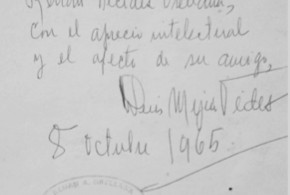 con el aprecio intelectual
y el afecto de su amigo,
Luis Mejía Vides
8 octubre 1965